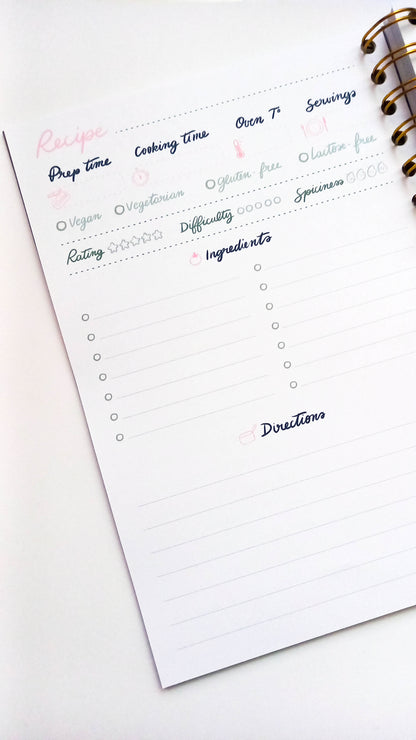 Recipe
Prep time Cooking time Oven T° Servings
Vegan Vegetarian gluten-free lactose-free
Rating Difficulty Spiciness
Ingredients
Directions